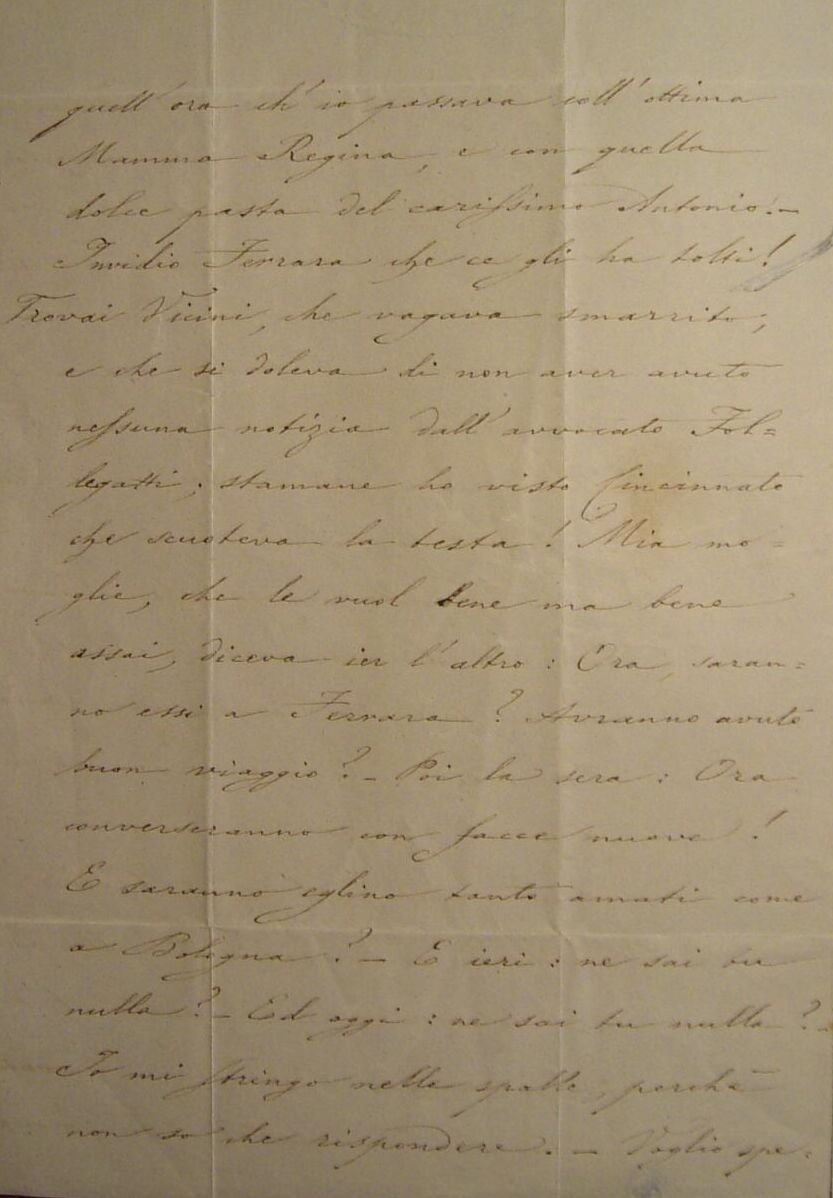 quell'ora ch'io passava coll'ottima
Mamma Regina, e con quella
dolce pasta del carissimo Antonio. —
Invidio Ferrara che ce gli ha tolti!
Trovai Vicini, che vagava smarrito,
e che si doleva di non aver avuto
nessuna notizia dall'avvocato Fol=
legatti; stamane ho visto Cincinnato
che scuoteva la testa! Mia mo=
glie, che le vuol bene ma bene
assai, diceva ier l'altro: Ora saran=
no essi a Ferrara? Avranno avuto
buon viaggio? — Poi la sera: Ora
converseranno con facce nuove!
E saranno eglino tanto amati come
a Bologna? — E ieri: ne sai tu
nulla? — Ed oggi: ne sai tu nulla? —
Io mi stringo nelle spalle, perchè
non so che rispondere. — Voglio spe=